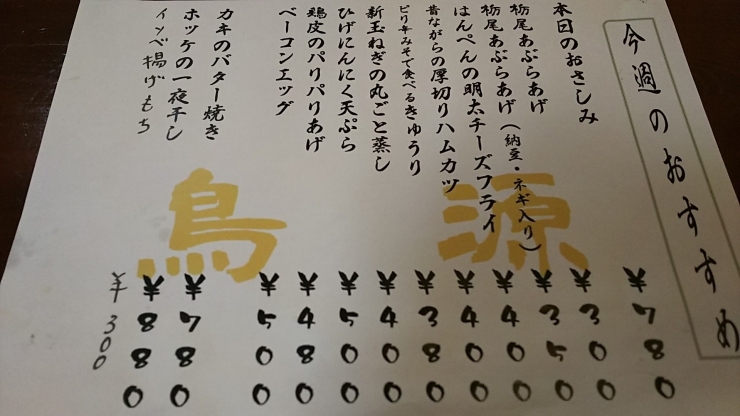 今週のおすすめ
本日のおさしみ ¥780
栃尾あぶらあげ ¥300
栃尾あぶらあげ(納豆・ネギ入り) ¥350
はんぺんの明太チーズフライ ¥400
昔ながらの厚切りハムカツ ¥400
ピリ辛みそで食べるきゅうり ¥380
新玉ねぎの丸ごと蒸し ¥400
ひげにんにく天ぷら ¥500
鶏皮のパリパリあげ ¥480
ベーコンエッグ ¥500
カキのバター焼き ¥780
ホッケの一夜干し ¥880
イソベ揚げもち ¥300
鳥源